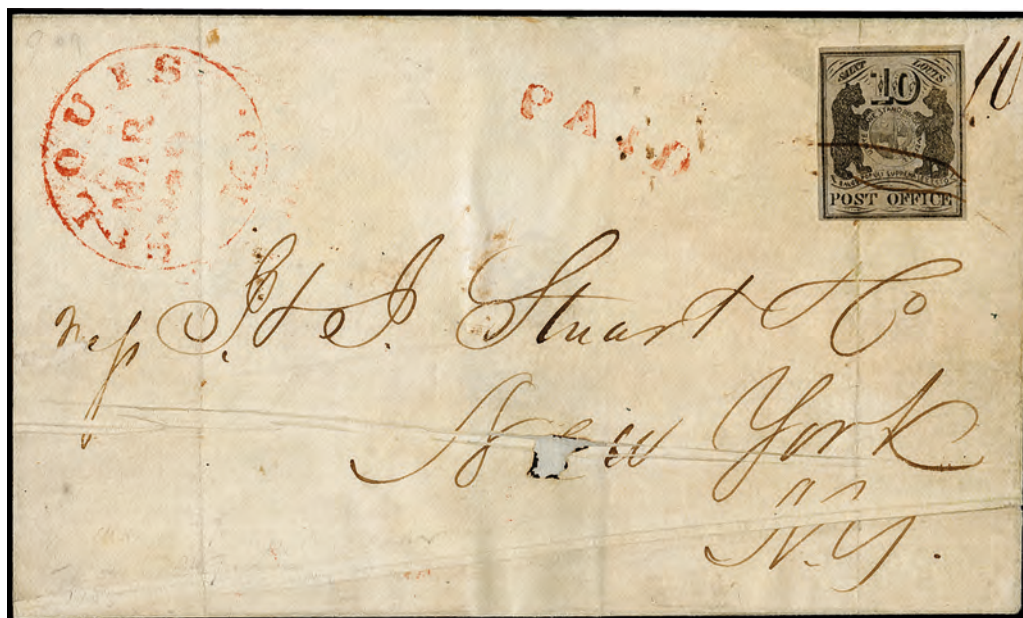 T LOUIS MO.
MAR
8
PAID
SAINT LOUIS
10
POST OFFICE
10
Mess J. & J. Stuart & Co
New York
N.Y.